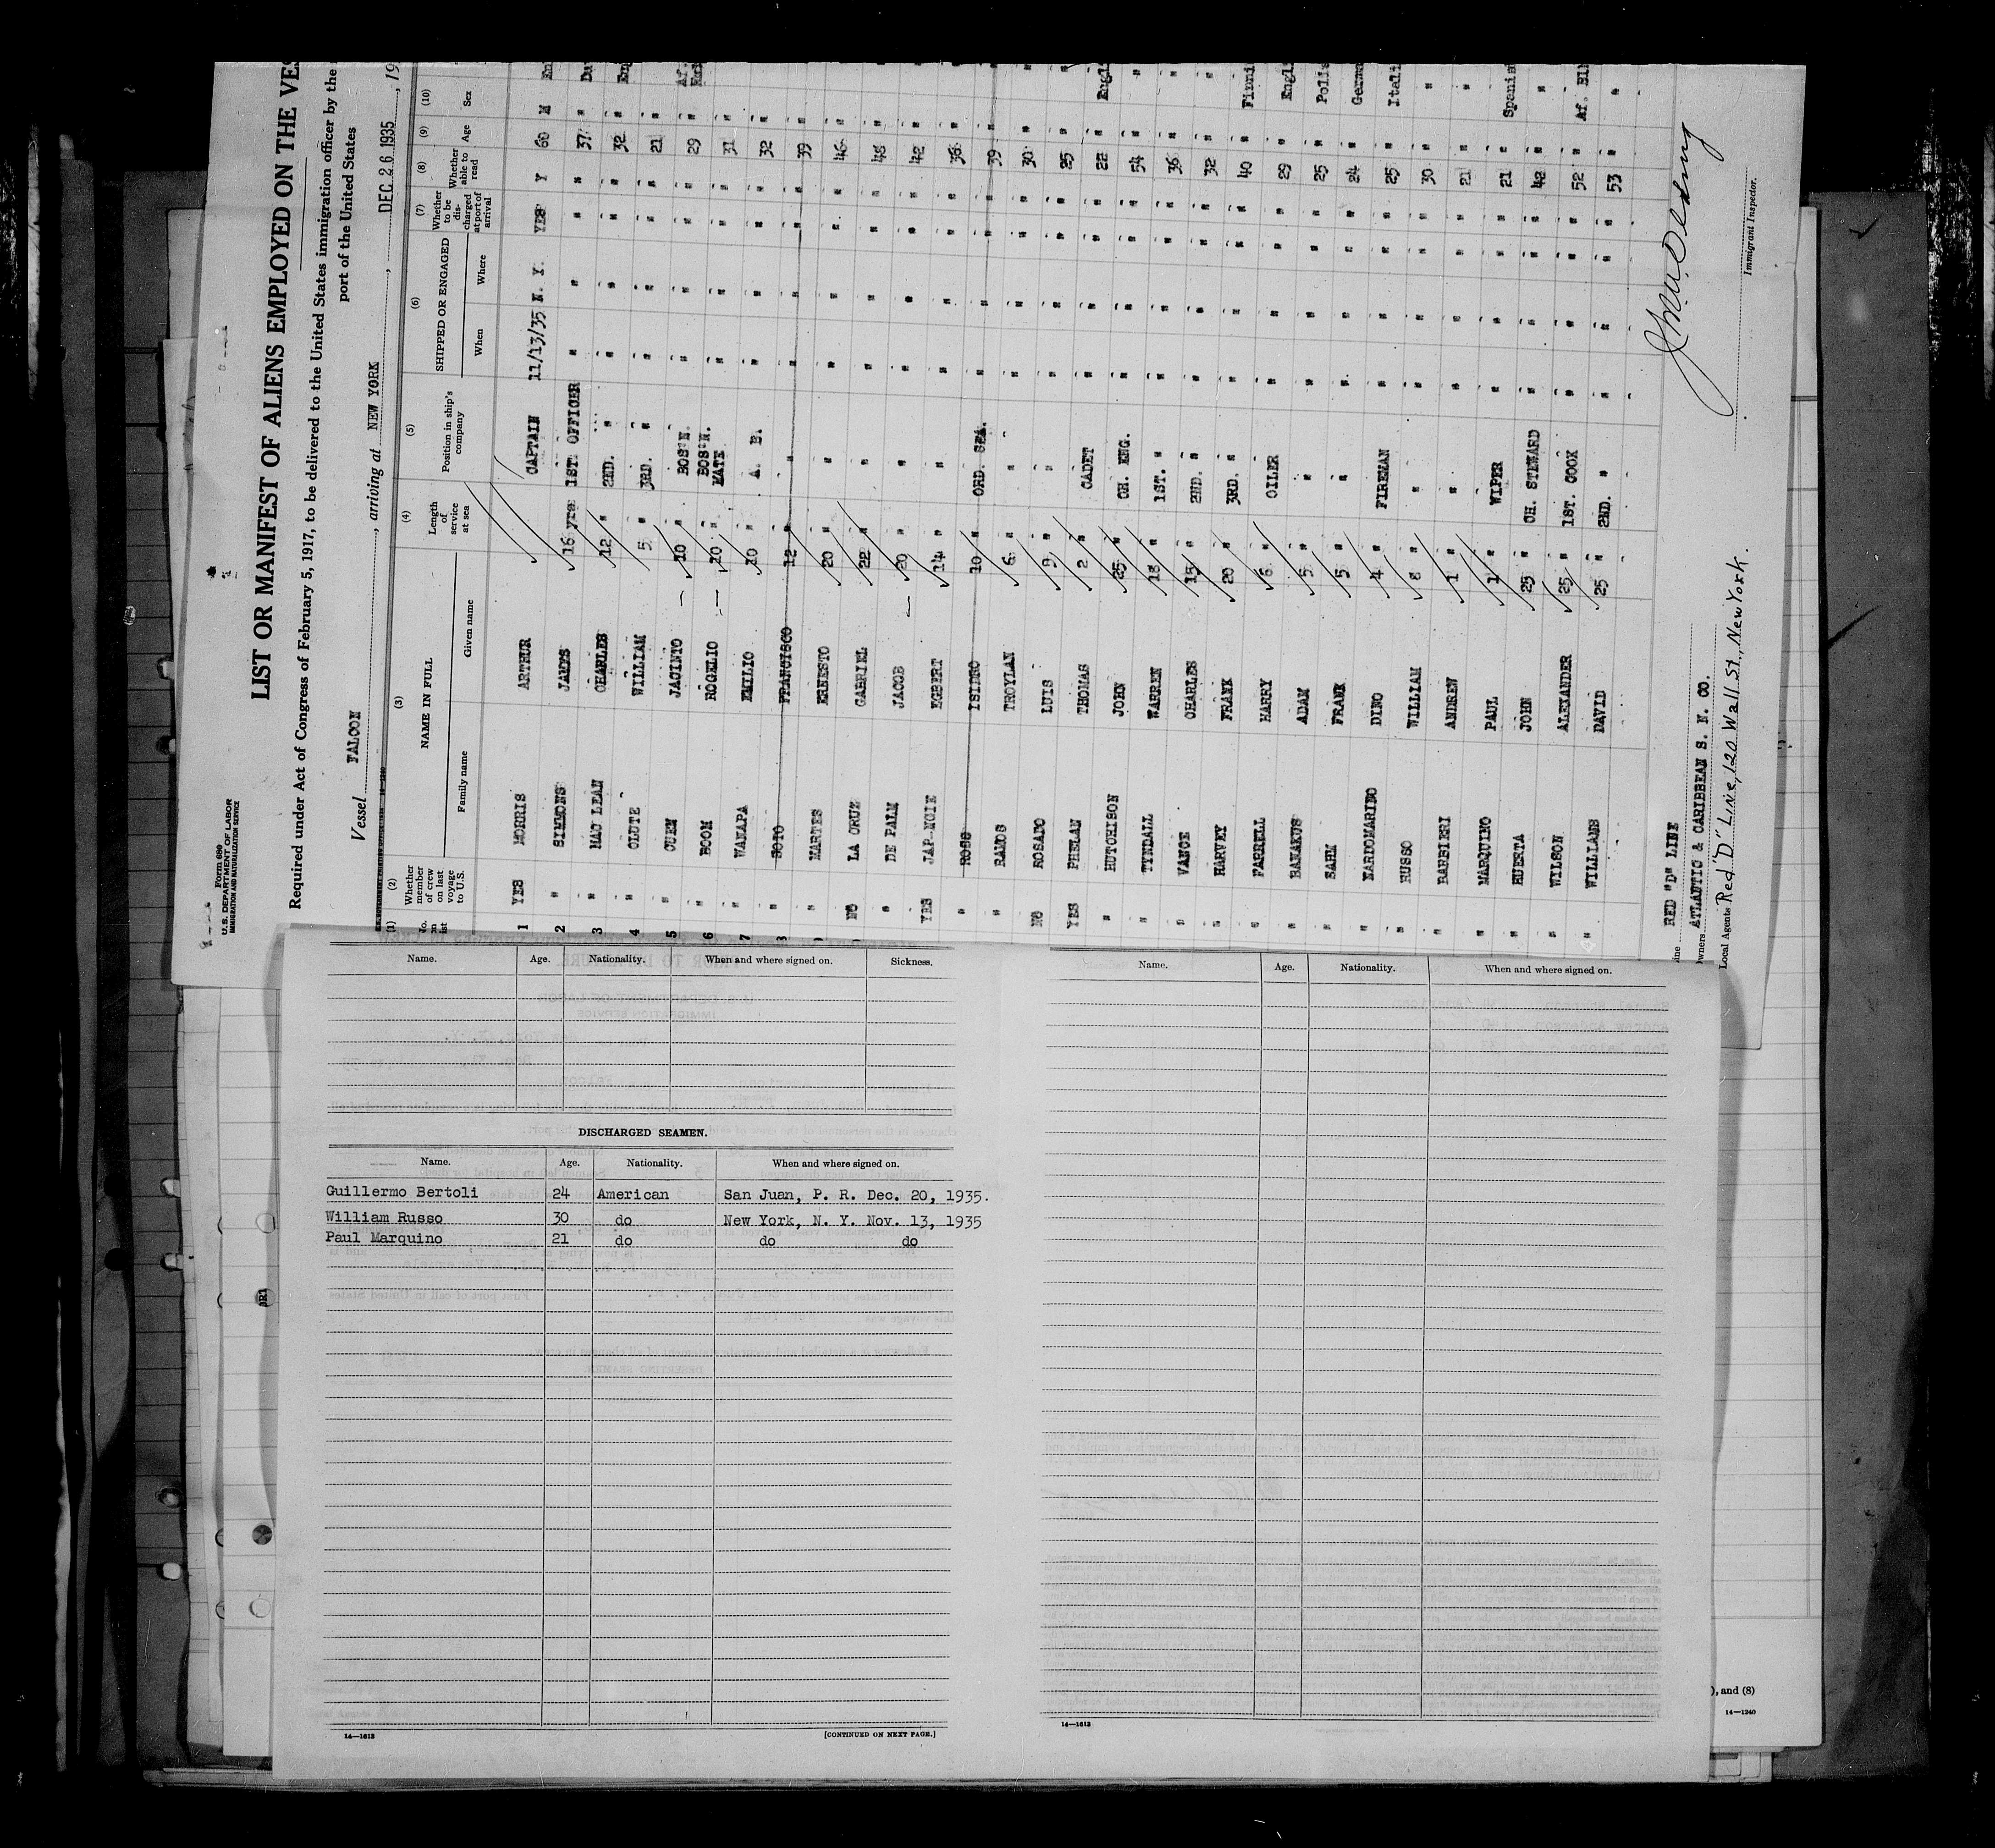 Form 680
U. S. DEPARTMENT OF LABOR
IMMIGRATION AND NATURALIZATION SERVICE
LIST OR MANIFEST OF ALIENS EMPLOYED ON THE VES
Required under Act of Congress of February 5, 1917, to be delivered to the United States immigration officer by the
port of the United States
Vessel FALCON, arriving at NEW YORK, DEC 26 1935, 19
(1) (2) (3) (4) (5) (6) (7) (8) (9) (10)
No. on list
Whether member of crew on last voyage to U.S.
NAME IN FULL
Family name Given name
Length of service at sea
Position in ship's company
SHIPPED OR ENGAGED
When Where
Whether to be discharged at port of arrival
Whether able to read
Age
Sex
1 YES MORRIS ARTHUR CAPTAIN 11/13/35 N. Y. YES Y 60 M En
2 " SIMMONS JAMES 16 yrs 1ST. OFFICER " " " " 37 " Da
3 " MAC LEAN CHARLES 12 " 2ND. " " " " " 32 " Eng
4 " CLUTE WILLIAM 5 " 3RD. " " " " " 21 "
5 " CUEN JACINTO 10 " BOS'N. " " " " 29 " Af.
6 " BOOM ROGELIO 10 " BOS'N. MATE " " " " 31 "
7 " WANAPA EMILIO 10 " A. B. " " " " 32 "
8 " SOTO FRANCISCO 12 " " " " " " 39 "
" MARTES ERNESTO 20 " " " " " " 46 "
NO LA CRUZ GABRIEL 22 " " " " " " 48 "
" DE PALM JACOB 20 " " " " " " 42 "
YES JAP-NOIE EGBERT 14 " " " " " " 38 "
" ROSS ISIDRO 10 " ORD. SEA. " " " " 39 "
" RAMOS THOYLAN 6 " " " " " " 30 "
NO ROSADO LUIS 9 " " " " " " 25 "
YES PHELAN THOMAS 2 " CADET " " " " 22 " Engl
" HUTCHISON JOHN 25 " CH. ENG. " " " " 54 "
" TYNDALL WARREN 18 " 1ST. " " " " " 36 "
" VANCE CHARLES 15 " 2ND. " " " " " 32 "
" HARVEY FRANK 20 " 3RD. " " " " " 40 " Finni
" FARRELL HARRY 6 " OILER " " " " 29 " Engli
" BANAKUS ADAM 5 " " " " " " 25 " Polis
" SAHM FRANK 5 " " " " " " 24 " Germa
" NARDOMARINO DINO 4 " FIREMAN " " " " 25 " Itali
" RUSSO WILLIAM 8 " " " " " " 30 " "
" BARBIERI ANDREW 1 " " " " " " 21 " "
" MARQUINO PAUL 1 " WIPER " " " " 21 " Spanis
" HUERTA JOHN 25 " CH. STEWARD " " " " 42 " "
" WILSON ALEXANDER 25 " 1ST. COOK " " " " 52 " Af. Bl
" WILLIAMS DAVID 25 " 2ND. " " " " " 53 " "
Line RED "D" LINE
Owners ATLANTIC & CARIBBEAN S. N. CO.
Local Agents Red "D" Line, 120 Wall St., New York.
Immigrant Inspector.
Name. Age. Nationality. When and where signed on. Sickness.
DISCHARGED SEAMEN.
Name. Age. Nationality. When and where signed on.
Guillermo Bertoli 24 American San Juan, P. R. Dec. 20, 1935.
William Russo 30 do New York, N. Y. Nov. 13, 1935
Paul Marquino 21 do do do
14—1613
[CONTINUED ON NEXT PAGE.]
Name. Age. Nationality. When and where signed on.
14—1613
), and (8)
14—1240